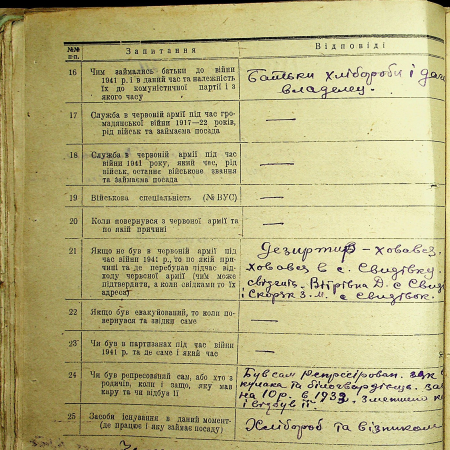 №№ п-п.
Запитання
Відповіді
16
Чим займались батьки до війни
1941 р. і в даний час та належність
їх до комуністичної партії і з
якого часу
Батьки хлібороби і
владелец.
17
Служба в червоній армії під час гро-
мадянської війни 1917—22 років,
рід військ та займаєна посада
—
18
Служба в червоній армії під час
війни 1941 року, який час, рід
військ, останнє військове звання
та займаєна посада
—
19
Військова спеціальність (№ ВУС)
—
20
Коли повернувся з червоної армії та
по якій причині
—
21
Якщо не був в червоній армії під
час війни 1941 р., то по якій при-
чині та де перебував підчас відхо-
ду червоної армії (чим може
підтвердити, а коли свідками то їх
адреса)
Дезиртир – ховавсь
ховавсь в с. Свидівку.
Д. с Свид
і З. М. с Свидівок.
22
Якщо був евакуйований, то коли по-
вернувся та звідки саме
23
Чи був в партизанах під час війни
1941 р. та де саме і який час
—
24
Чи був репресований сам, або хто з
родичів, коли і защо, яку мав
кару та чи відбув її
Був сам репресірован.
кулака та білогвардієця.
на 10 р. в 1933.
і відбув її.
25
Засоби існування в даний момент-
(де працює і яку займає посаду)
Хлібороб та візником